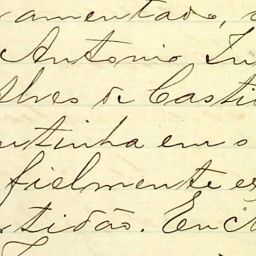 ramentado,
Antonio
Alves de Casti
tinha em s
fielmente es
rtidão. Enc